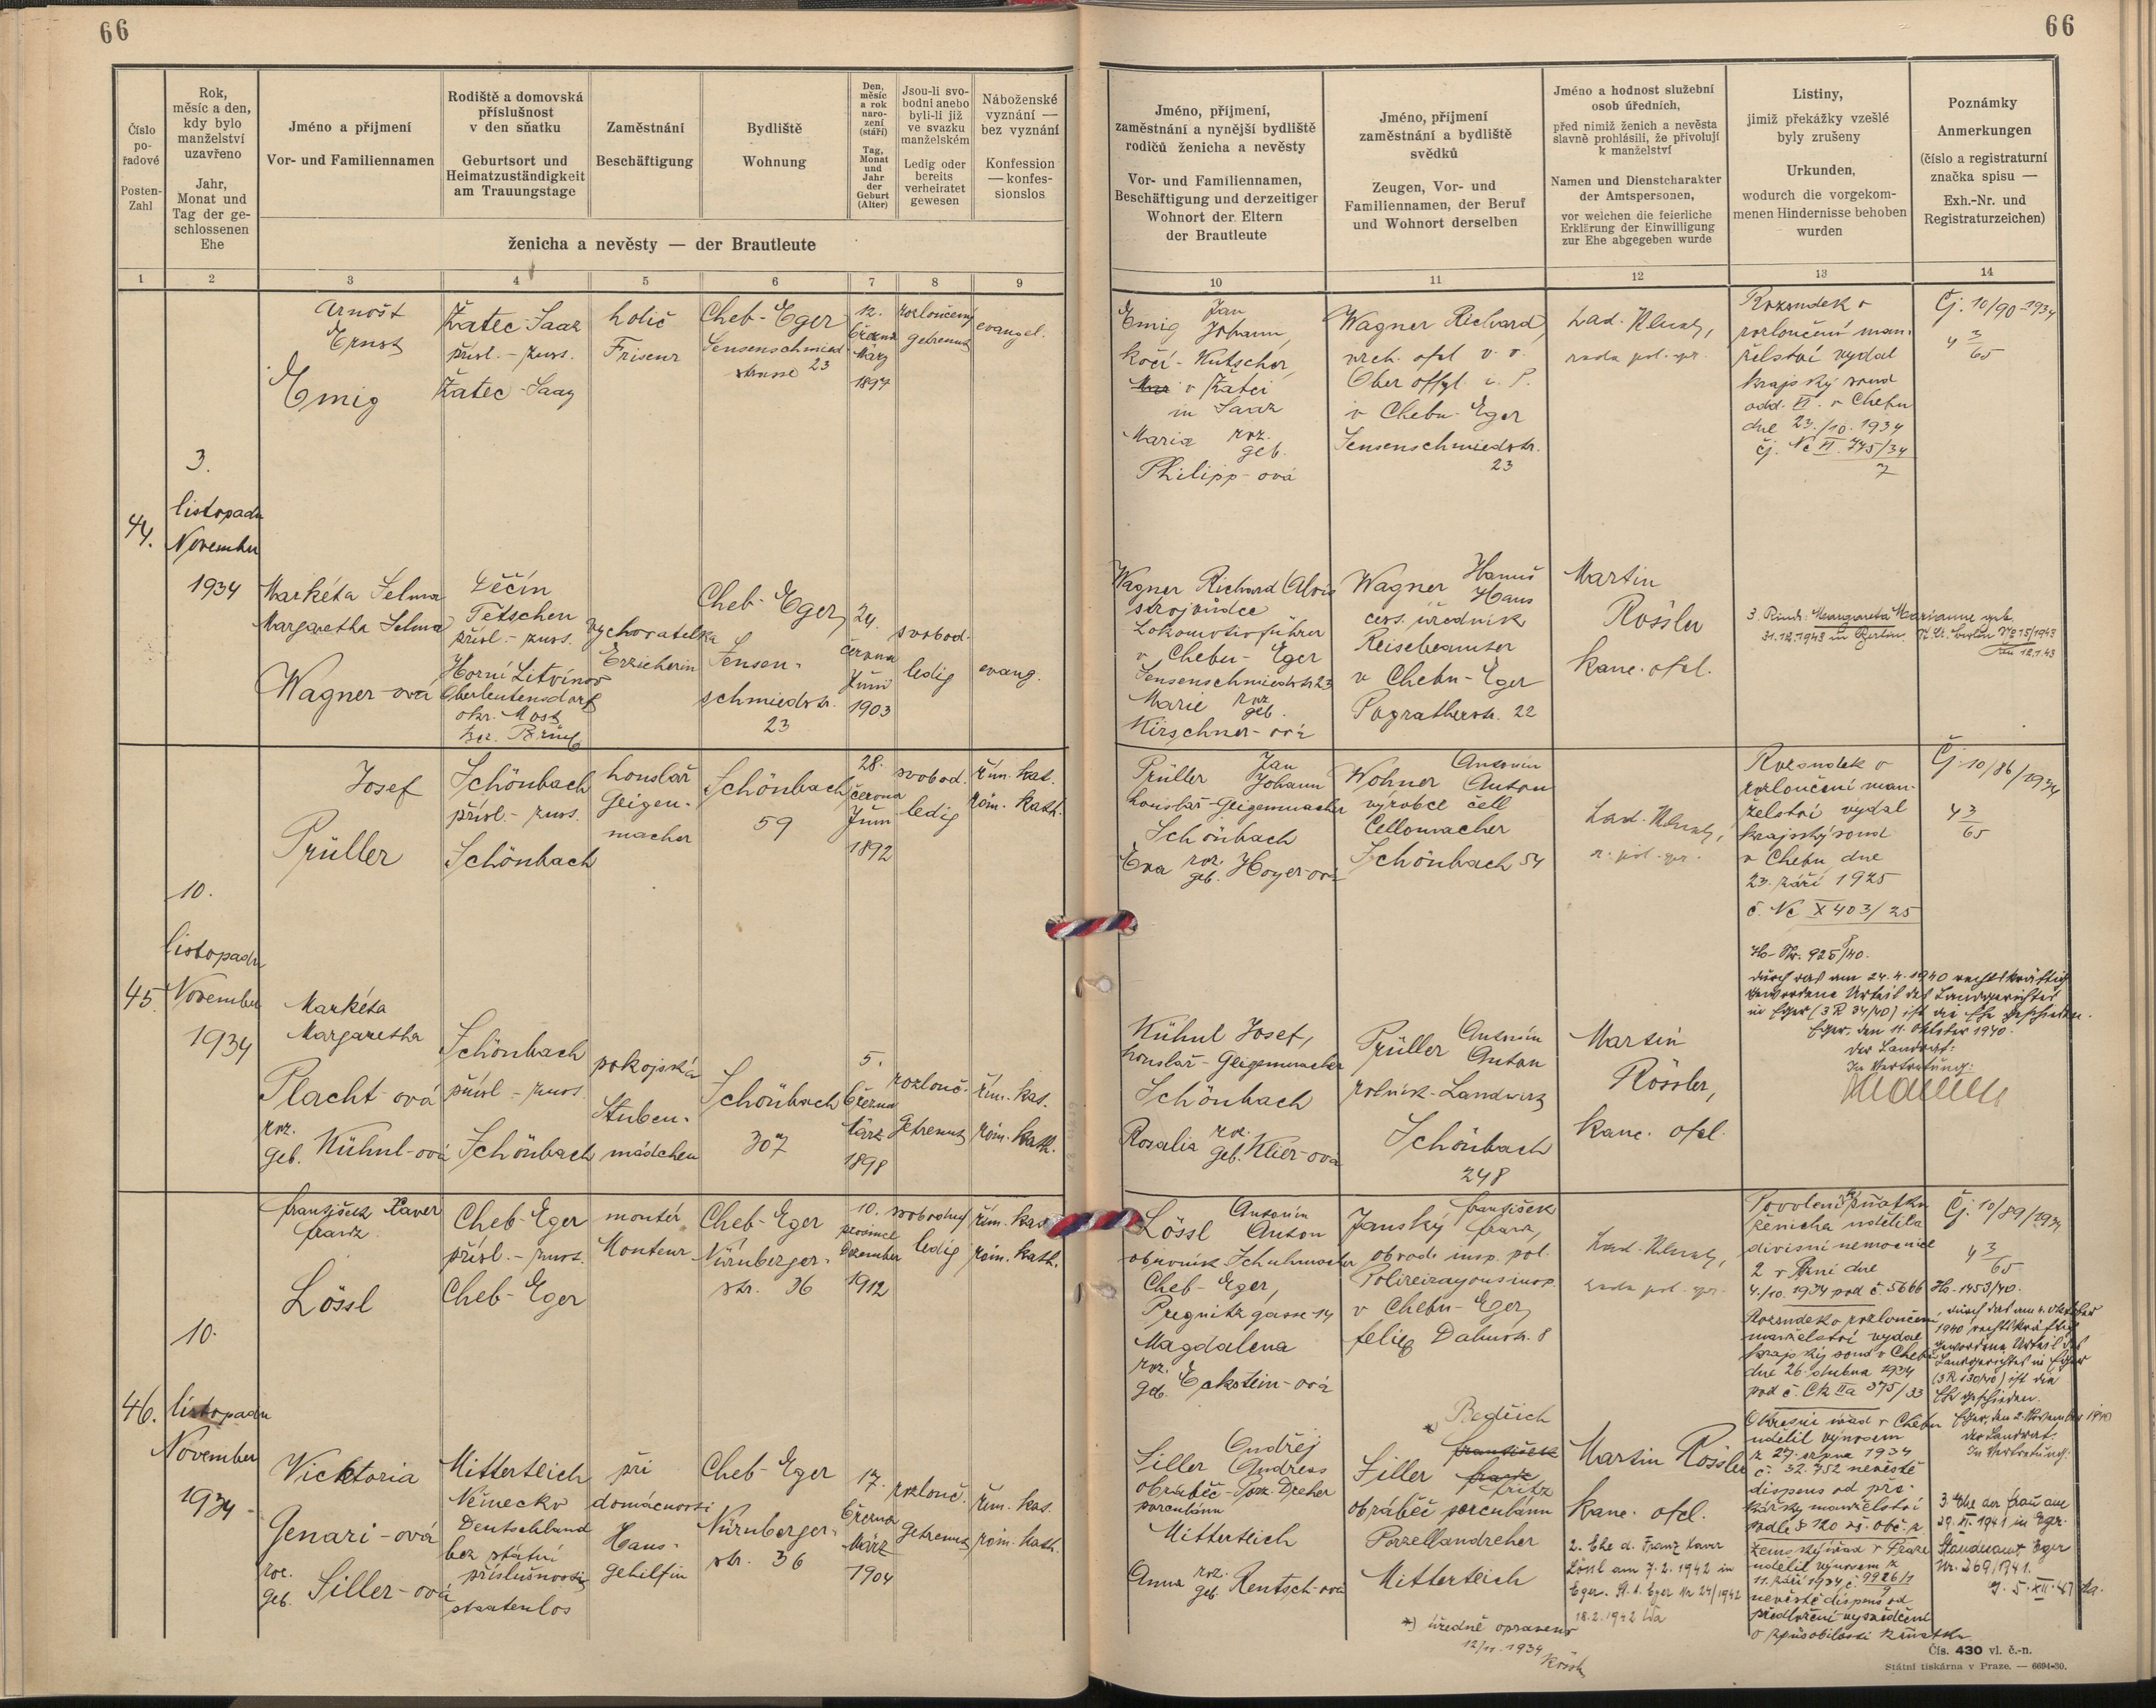 66
66
Číslo
po-
řadové
Posten-
Zahl
Rok,
měsíc a den,
kdy bylo
manželství
uzavřeno
Jahr,
Monat und
Tag der ge-
schlossenen
Ehe
Jméno a přijmení
Vor- und Familiennamen
Rodiště a domovská
příslušnost
v den sňatku
Geburtsort und
Heimatzuständigkeit
am Trauungstage
Zaměstnání
Beschäftigung
Bydliště
Wohnung
Den,
měsíc
a rok
naro-
zení
(stáří)
Tag,
Monat
und
Jahr
der
Geburt
(Alter)
Jsou-li svo-
bodni anebo
byli-li již
ve svazku
manželském
Ledig oder
bereits
verheiratet
gewesen
Náboženské
vyznání —
bez vyznání
Konfession
— konfes-
sionslos
ženicha a nevěsty — der Brautleute
Jméno, přijmení,
zaměstnání a nynější bydliště
rodičů ženicha a nevěsty
Vor- und Familiennamen,
Beschäftigung und derzeitiger
Wohnort der Eltern
der Brautleute
Jméno, přijmení
zaměstnání a bydliště
svědků
Zeugen, Vor- und
Familiennamen, der Beruf
und Wohnort derselben
Jméno a hodnost služební
osob úředních,
před nimiž ženich a nevěsta
slavně prohlásili, že přivolují
k manželství
Namen und Dienstcharakter
der Amtspersonen,
vor welchen die feierliche
Erklärung der Einwilligung
zur Ehe abgegeben wurde
Listiny,
jimiž překážky vzešlé
byly zrušeny
Urkunden,
wodurch die vorgekom-
menen Hindernisse behoben
wurden
Poznámky
Anmerkungen
(číslo a registraturní
značka spisu —
Exh.-Nr. und
Registraturzeichen)
1 2 3 4 5 6 7 8 9 10 11 12 13 14
44.
3.
listopadu
November
1934
Arnošt
Ernst
Emig
Žatec-Saaz
přísl. - zust.
Žatec-Saaz
holič
Friseur
Cheb-Eger
Sensenschmied-
strasse 23
12.
března
März
1897
rozloučený
getrennt
evangel.
Jan
Emig Johann,
kočí-Kutscher,
v Žatci
in Saaz
Maria roz.
geb.
Philipp-ová
Wagner Richard,
vrch. ofcl v. v.
Ober offzl. i. P.
v Chebu-Eger
Sensenschmiedstr.
23
rada pol. spr.
Rozsudek o
rozloučení man-
želství vydal
krajský soud
odd. VI. v Chebu
dne 23./10. 1934
čj. Nc VI. 775/34
7
Čj. 10/90-1934
4 3/65
Markéta Selma
Margaretha Selma
Wagner-ová
Děčín
Tetschen
přísl. - zust.
Horní Litvínov
Oberleutensdorf
okr. Most
Bez. Brüx
vychovatelka
Erzieherin
Cheb-Eger
Sensen-
schmiedstr.
23
24.
června
Juni
1903
svobod.
ledig
evang.
Wagner Richard Alois
strojvůdce
Lokomotivführer
v Chebu-Eger
Sensenschmiedstr 23
Marie roz.
geb.
Kirschner-ová
Wagner Hanuš
Hans
cest. úředník
Reisebeamter
v Chebu-Eger
Pogratherstr. 22
Martin
Rössler
kanc. ofcl.
3. Kind: Margareta Marianne geb.
31.12.1943 in Berlin.
45.
10.
listopadu
November
1934
Josef
Prüller
Schönbach
přísl. - zust.
Schönbach
houslař
Geigen-
macher
Schönbach
59
28.
června
Juni
1892
svobod.
ledig
řím. kat.
röm. kath.
Prüller Jan
Johann
houslař-Geigenmacher
Schönbach
Eva roz.
geb. Hoyer-ová
Antonín
Wohner Anton
výrobce čell
Cellomacher
Schönbach 54
r. pol. spr.
Rozsudek o
rozloučení man-
želství vydal
krajský soud
v Chebu dne
23. září 1925
č. Nc X 403/25
Čj. 10/86/1934
4 3/65
Ho-Nr. 925/40.
Durch das am 24.4.1940 rechtskräftig
gewordene Urteil des Landgerichtes
in Eger (3 R 34/40) ist die Ehe geschieden.
Eger, den 11. Oktober 1940.
Der Landrat:
In Vertretung:
Markéta
Margaretha
Placht-ová
roz.
geb. Kühnl-ová
Schönbach
přísl - zust.
Schönbach
pokojská
Stuben-
mädchen
Schönbach
307
5.
března
März
1898
rozlouč.
getrennt
řím. kat.
röm. kath.
Kühnl Josef,
houslař-Geigenmacher
Schönbach
Rosalia roz.
geb. Klier-ová
Prüller Antonín
Anton
rolník-Landwirt
Schönbach
248
Martin
Rössler,
kanc. ofcl.
46.
10.
listopadu
November
1934
František Xaver
Franz
Lössl
Cheb-Eger
přísl. - zust.
Cheb-Eger
montér
Monteur
Cheb-Eger
Nürnberger-
str. 36
10.
prosince
Dezember
1912
svobodný
ledig
řím. kat.
röm. kath.
Lössl Antonín
Anton
obuvník Schuhmacher
Cheb-Eger,
Pregnitzgasse-14
Magdalena
roz.
geb. Eckstein-ová
Janský František
Franz,
obvod. insp. pol.
Polizeirayonsinsp.
v Chebu-Eger,
Felix Dahnstr. 8
rada pol. spr.
Povolení k sňatku
ženicha udělila
divisní nemocnice
2 v Plzni dne
4./10. 1934 pod č. 5666
Rozsudek o rozloučení
manželství vydal
krajský soud v Chebu
dne 26. dubna 1934
pod č. Ck IIa 375/33
Okresní úřad v Chebu
udělil výnosem
z 27. srpna 1934
č. 32.752 nevěstě
dispens od pře-
kážky manželství
podle § 120 vš. obč. z.
Zemský úřad v Praze
udělil výnosem z
11. září 1934 č. 9926/1
nevěstě dispens od
předložení vysvědčení
o způsobilosti k sňatku
Čj. 10/89/1934
4 3/65
Ho-1453/40.
Durch das am 4. Oktober
1940 rechtskräftig
gewordene Urteil des
Landgerichtes in Eger
(3 R 130/40) ist die
Ehe geschieden.
Eger, den 2. November 1940
Der Landrat:
In Vertretung:
3. Ehe der Frau am
29.XI.1941 in Eger.
Standesamt Eger
Nr. 369/1941.
Vicktoria
Genari-ová
roz.
geb. Siller-ová
Mitterteich
Německo
Deutschland
bez státní
příslušnosti
staatenlos
při
domácnosti
Haus-
gehilfin
Cheb-Eger
Nürnberger-
str. 36
17.
března
März
1904
rozlouč.
getrennt
řím. kat.
röm. kath.
Ondřej
Siller Andreas
obráběč-Porz. Dreher
porculánu
Mitterteich
Anna roz.
geb. Rentsch-ová
*) Bedřich
František
Siller Franz
Fritz
obráběč porculánu
Porzellandreher
Mitterteich
Martin Rössler
kanc. ofcl.
2. Ehe d. Franz Xaver
Lössl am 7.2.1942 in
Eger. St. A. Eger Nr 24/1942
18.2.1942
*) úředně opraveno
12/11. 1934
Čís. 430 vl. č.-n.
Státní tiskárna v Praze. — 6694-30.